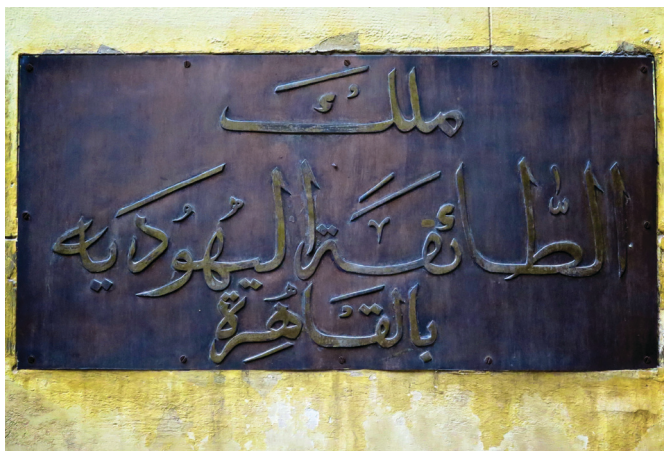 ملك
الطَّائفة اليهُوديه
بالقَاهُرة